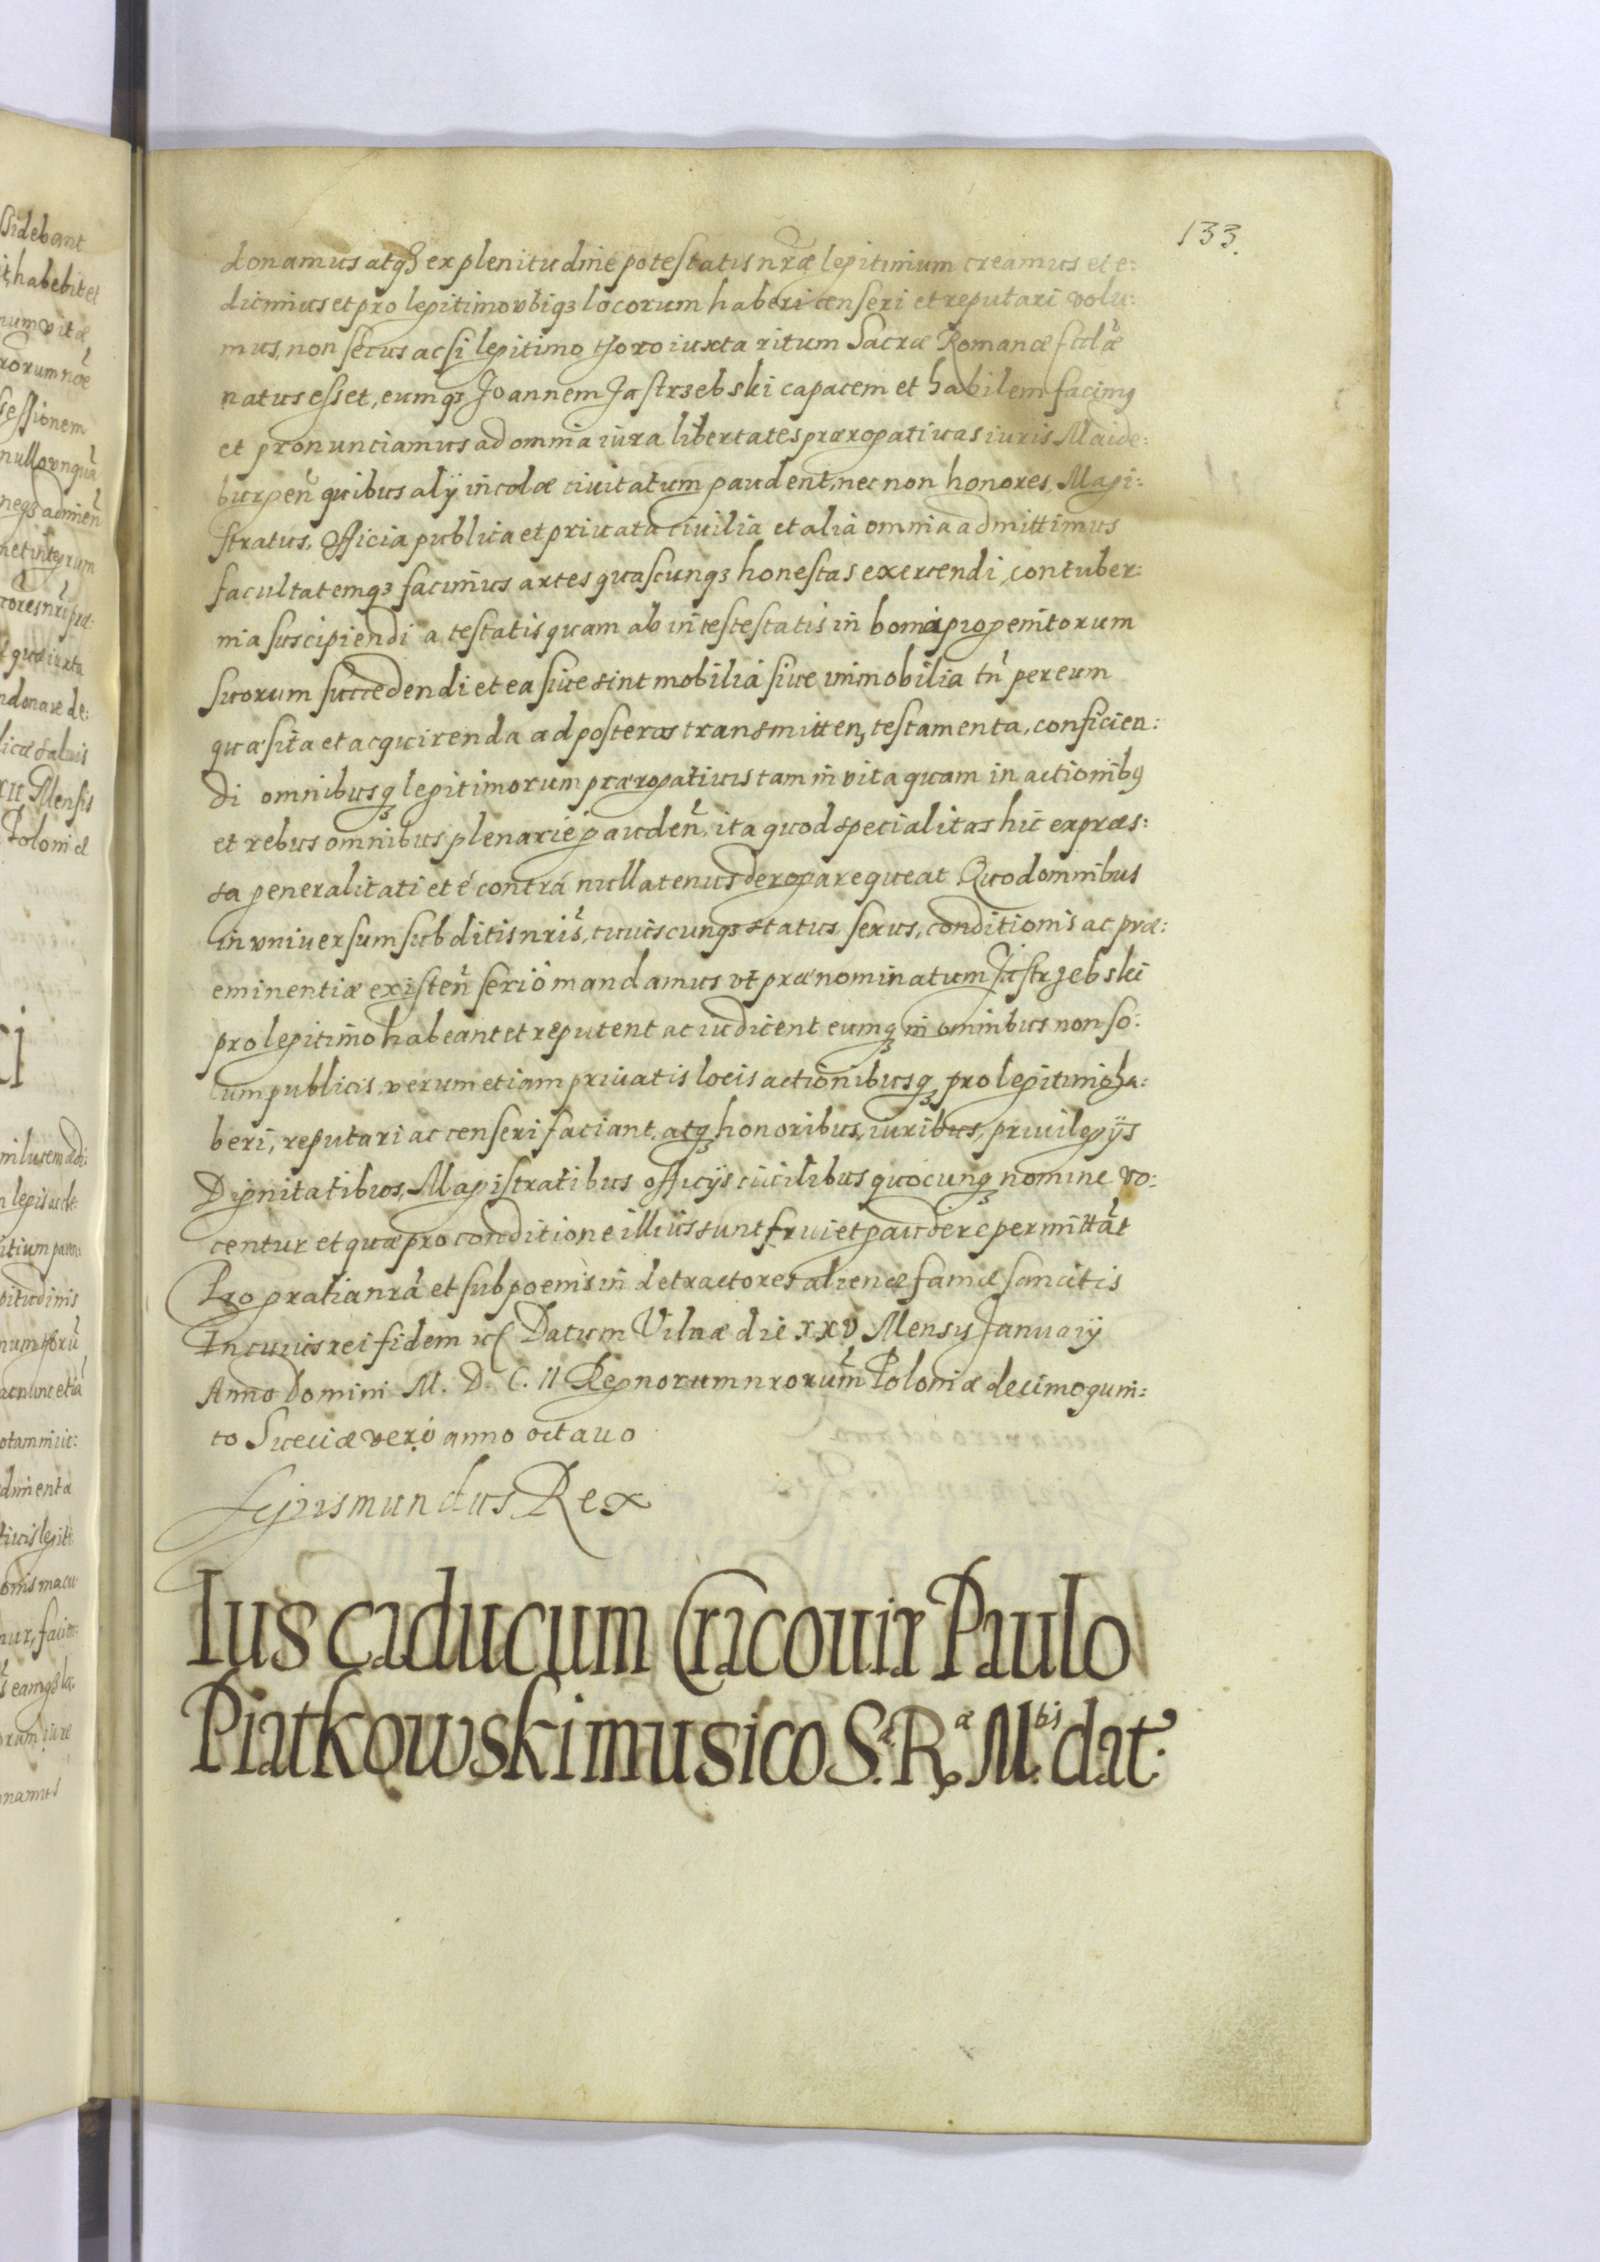 133.
donamus atq₃ ex plenitudine potestatis nrae legitimum creamus et e:
dicimus et pro legitimo vbiq₃ locorum haberi censeri et reputari volu:
mus, non secus ac si legitimo thoro iuxta ritum Sacrae Romanae
natus esset, eumq₃ Joannem Jastrsebski capacem et habilem facimq
et pronunciamus ad omnia iura libertates praerogatiuas iuris Maide:
burgen quibus alÿ incolae ciuitatum gaudent, nec non honores, Magi:
stratus, Officia publica et priuata ciuilia et alia omnia admittimus
facultatemq₃ facimus artes quascunq₃ honestas exercendi, contuber:
nia suscipiendi a testatis quam ab intestestatis in bona progenitorum
suorum succedendi et ea siue sint mobilia siue immobilia tn per eum
quaesita et acquirenda ad posteros transmitten₃ testamenta, conficien:
di omnibusq₃ legitimorum praerogatiuis tam in vita quam in actionibq
et rebus omnibus plenarie gauden, ita quod specialitas hic expraes:
sa generalitati et é contrá nullatenus derogare queat Quod omnibus
in vniuersum subditis nris, cuiuscunq₃ status, sexus, conditionis ac prae:
eminentiae existen serió mandamus vt praenominatum Jastrzebski
pro legitimo habeant et reputent ac iudicent eumq₃ in omnibus non so:
lum publicis, verum etiam priuatis locis actionibusq₃ pro legitimo ha:
beri, reputari ac censeri faciant, atq₃ honoribus, iuribus, priuilegÿs
Dignitatibus, Magistratibus officÿs ciuilibus quocunq₃ nomine vo:
centur et quae pro conditione illius sunt frui et gaudere permittat
Pro gratia nra et sub poenis in detractores alienae famae sancitis
In cuius rei fidem Datum Vilnae die XXV Mensis Januarÿ
Anno Domini M. D. C. II Regnorum nrorum Poloniae decimoquin:
to Sueciae veró anno octauo
Sigismundus Rex
Ius caducum Cracouiae Paulo
Piatkowski musico S. R. M. dat.